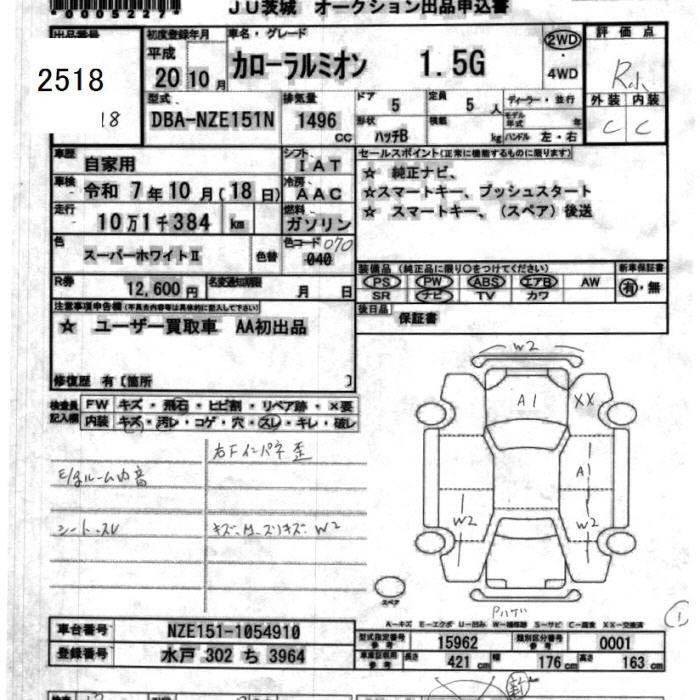 0005227
JU茨城 オークション出品申込書
出品番号
2518
18
初度登録年月
平成
20 10 月
車名・グレード
カローラルミオン 1.5G
2WD
4WD
評価点
R小
外装 内装
C C
型式
DBA-NZE151N
排気量
1496
CC
ドア 5
定員 5 人
ディーラー・並行
モデル年式 年
形状
ハッチB
積載 kg
ハンドル 左・右
車歴
自家用
シフト
IAT
車検
令和 7年10月(18日)
冷房
AAC
走行
10万1千384 km
燃料
ガソリン
色
スーパーホワイトⅡ
色替
色コード 070
040
R券
12,600円
名変通知期限
月 日
セールスポイント(正常に機能するものに限ります)
☆ 純正ナビ、
☆スマートキー、プッシュスタート
☆ スマートキー、(スペア)後送
装備品(純正品に限り○をつけてください)
PS PW ABS エアB AW
SR ナビ TV カワ
新車保証書
有・無
後日品
保証書
注意事項申告欄(不具合内容等は具体的に記入して下さい)
☆ ユーザー買取車 AA初出品
修復歴 有〔箇所 〕
検査員記入欄
FW キズ・飛石・ヒビ割・リペア跡・×要
内装 キズ・汚レ・コゲ・穴・スレ・キレ・破レ
右Fインパネ歪
E/gルーム内音
シートスレ
W2
W2
A1
XX
A1
W2
W2
Pハゲ
スペア
A-キズ E-エクボ U-凹み W-補修跡 S-サビ C-腐食 XX-交換済
1
車台番号
NZE151-1054910
登録番号
水戸 302 ち 3964
型式指定番号 参考
15962
類別区分番号 参考
0001
車庫証明用 参考
長さ 421 cm
幅 176 cm
高さ 163 cm